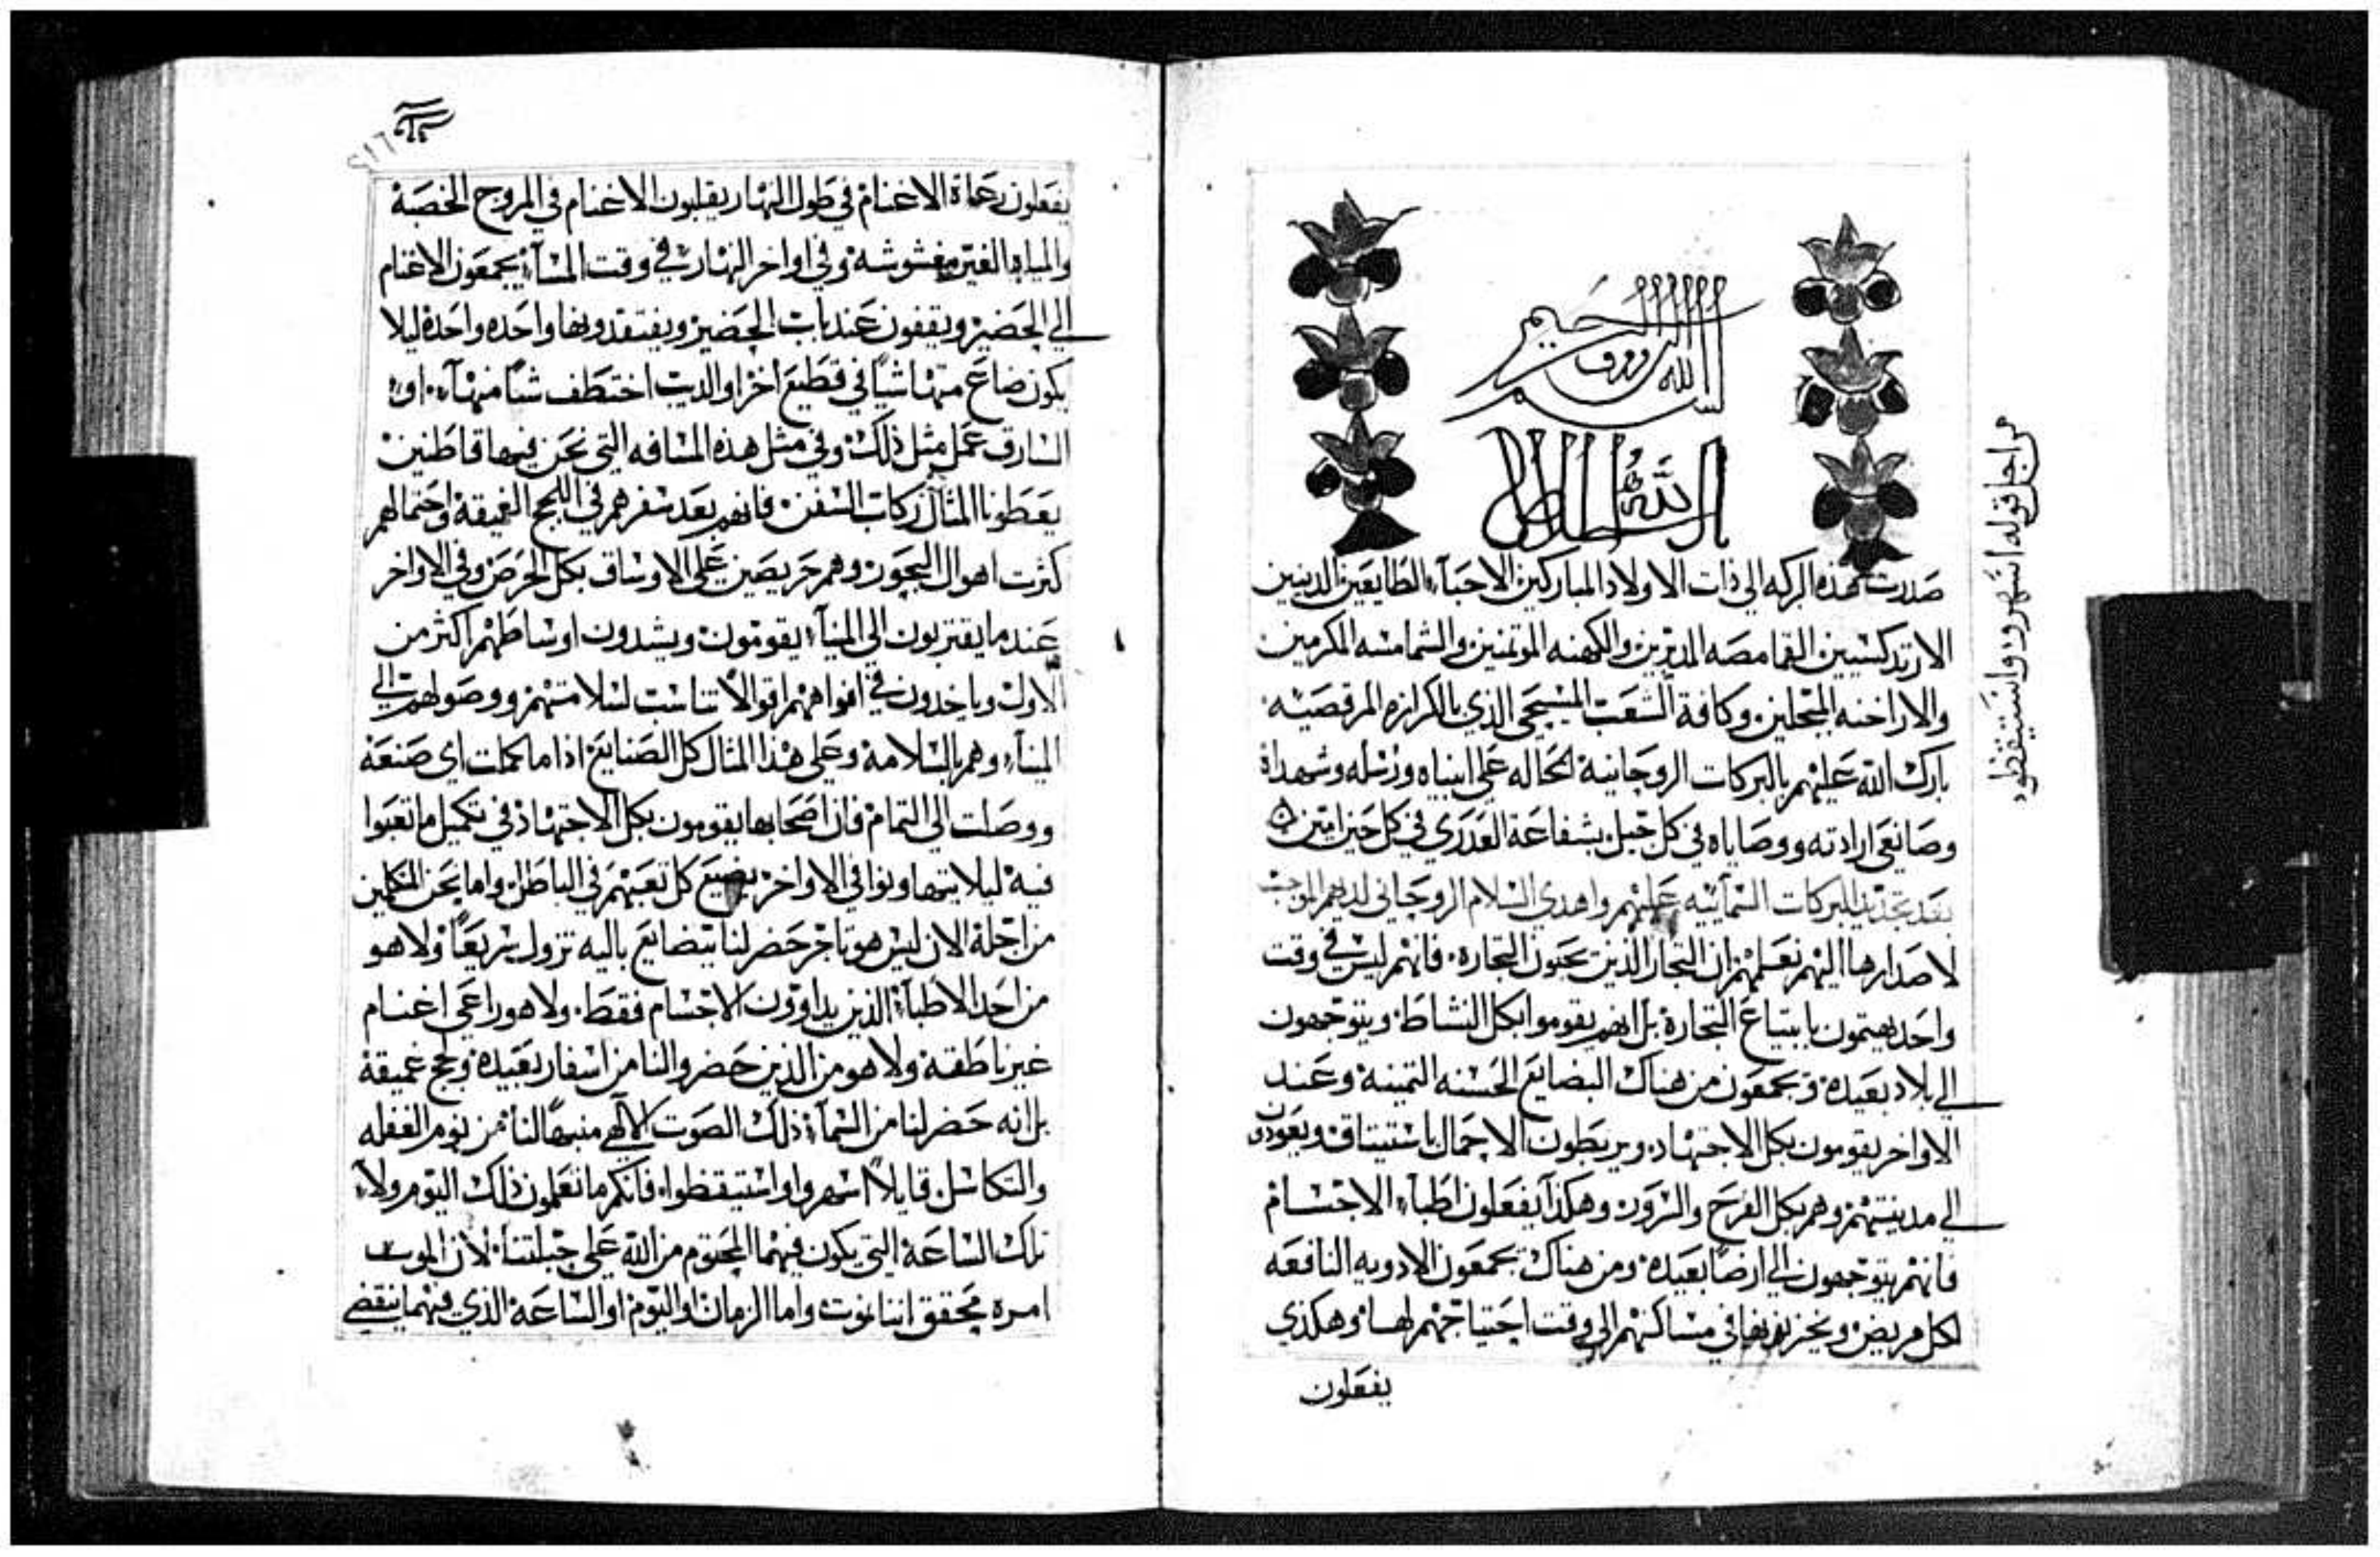 بسم الله الرووف الرحيم
الله
صدرت هذه البركه الي ذات الاولاد المباركين الاحبآء الطايعين الدينين
الارتدكسيين القمامصه المدبرين والكهنه الموتمنين والشمامسه المكرمين
والاراخنه المبجلين وكافة الشعب المسيحي الذي بالكرازه المرقصيه
بارك الله عليهم بالبركات الروحانية الحاله علي انبياه ورسله وشهداة
وصانعي ارادته ووصاياه في كل جيل بشفاعة العدري في كل حين امين
بعد تجديد البركات السمآئيه عليهم واهدي السلام الروحاني لديهم الموجب
لاصدارها اليهم نعلمهم ان التجار الذين يحبون التجاره فانهم ليس في وقت
واحد يهتمون بابتياع التجارة بل انهم يقوموا بكل النشاط ويتوجهون
الي بلاد بعيدة ويجمعون من هناك البضايع الحسنه التمينة وعند
الاواخر يقومون بكل الاجتهاد ويربطون الاحمال باستيتاق ويعودون
الي مدينتهم وهم بكل الفرح والسرور وهكذا يفعلون اطبآء الاجسام
فانهم يتوجهون الي ارضًا بعيدة ومن هناك يجمعون الادويه النافعه
لكل مريض ويخزنونها في مساكنهم الي وقت احتياجهم لها وهكذي
يفعلون
من اجل قوله اسهروا واستيقظوا
يفعلون رعاة الاغنام في طول النهار يقلبون الاغنام في المروج الخصبة
والمياه الغير مغشوشة وفي اواخر النهار في وقت المسآء يجمعون الاغنام
الي الحضير ويقفون عند باب الحضير ويفتقدونها واحده واحدة ليلا
يكون ضاع منها شيًا في قطيع اخر او الديب اختطف شيًا منهآ او
السارق عمل مثل ذلك وفي مثل هذه المسافه التي نحن فيها قاطنين
يعطونا المثال ركاب السفن فانهم بعد سفرهم في اللجج الغميقة واحتمالهم
كثرت اهوال البحور وهم حريصين علي الاوساق بكل الحرص وفي الاواخر
عند ما يقتربون الي المينآء يقومون ويشدون اوساطهم اكثر من
الاول وياخدون في افواههم اقوالًا تناسب لسلامتهم ووصولهم الي
المينآء وهم بالسلامة وعلي هذا المثال كل الصنايع اذا ما كملت اي صنعة
ووصلت الي التمام فان اصحابها يقومون بكل الاجتهاد في تكميل ما تعبوا
فية ليلا يتهاونوا في الاواخر يضيع كل تعبهم في الباطل واما نحن المتكلمين
من اجلة الان ليس هو تاجر حضر لنا ببضايع باليه تزول سريعًا ولا هو
من احد الاطبآء الذين يداوون الاجسام فقط ولا هو راعي اغنام
غير ناطقة ولا هو من الذين حضروا لنا من اسفار بعيدة ولجج غميقة
بل انه حضر لنا من السمآء ذلك الصوت الالهي منبهًا لنا من نوم الغفله
والتكاسل قايلًا اسهروا واستيقظوا فانكم ما تعلمون ذلك اليوم ولا
تلك الساعة التي يكون فيهما المحتوم من الله علي جبلتنا لان الموت
امره محقق اننا نموت واما الزمان او اليوم او الساعة الذي فيهما ينقضي